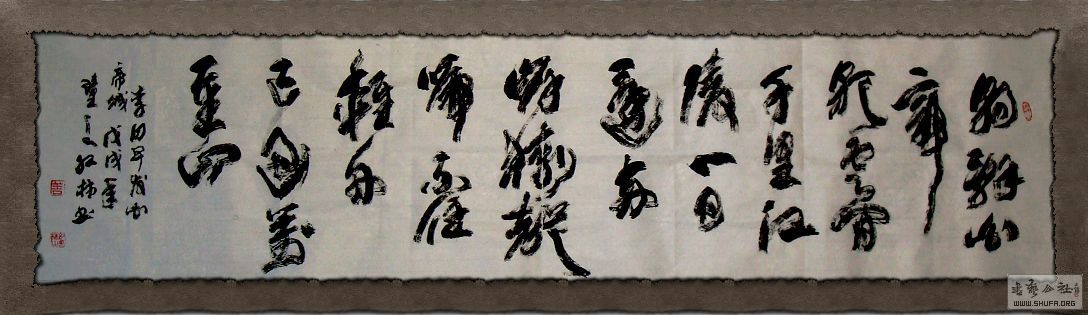 朝辭白
帝
彩雲間
千里江
陵一日
還兩
岸猿聲
啼不住
輕舟
已過萬
重山
李白早發白
帝城 戊戌年
書
WWW.SHUFA.ORG